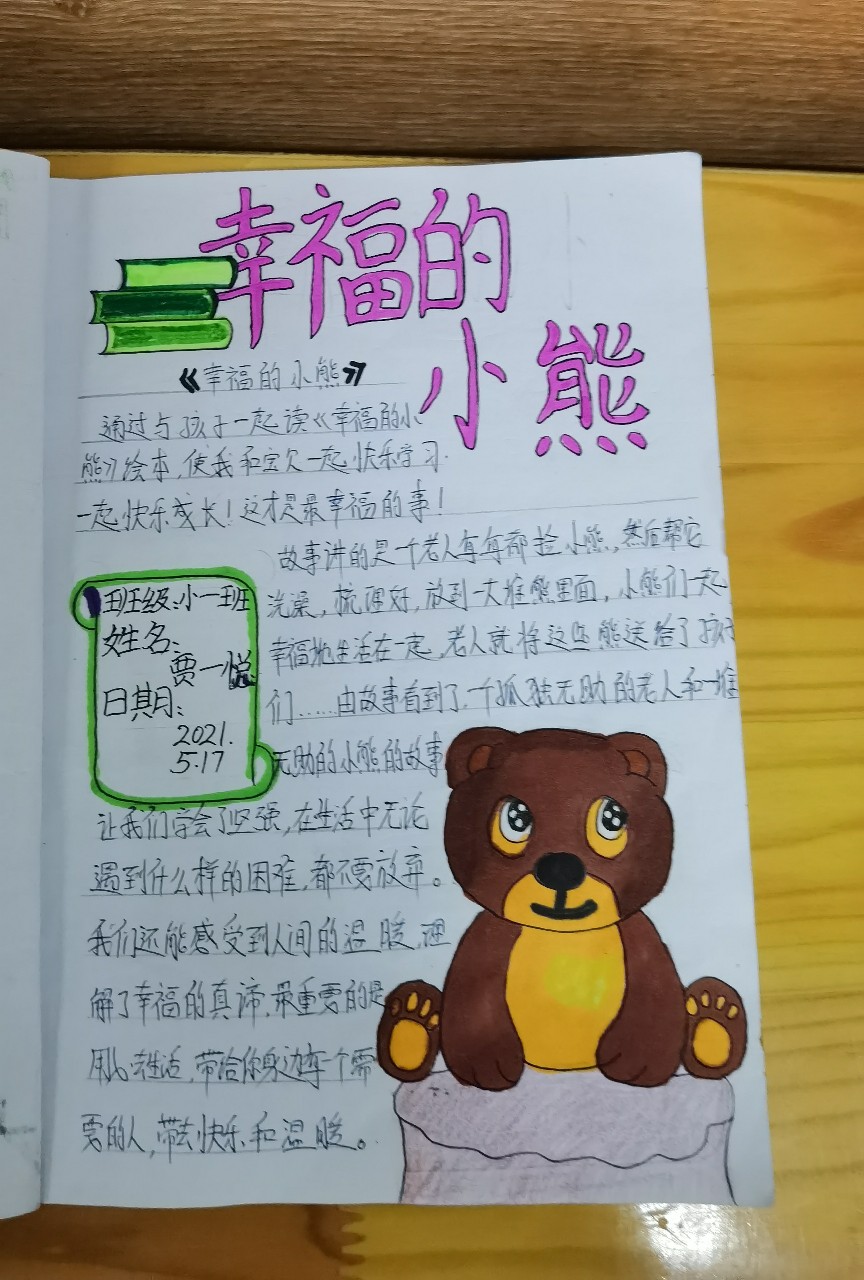 幸福的
小熊
《幸福的小熊》
通过与孩子一起读《幸福的小
熊》绘本，使我和宝贝一起快乐学习
一起快乐成长！这才是最幸福的事！
故事讲的是一个老人每每都捡小熊，然后帮它
洗澡，梳理好，放到一大堆熊里面，小熊们一起
幸福地生活在一起，老人就将这些熊送给了孩子
们……由故事看到了，一个孤独无助的老人和一堆
无助的小熊的故事
班级：小一班
姓名：
贾一悦
日期：
2021.
5.17
让我们学会了坚强，在生活中无论
遇到什么样的困难，都不要放弃。
我们还能感受到人间的温暖，理
解了幸福的真谛，最重要的是
用心去生活，带给你身边每一个需
要的人，带去快乐和温暖。